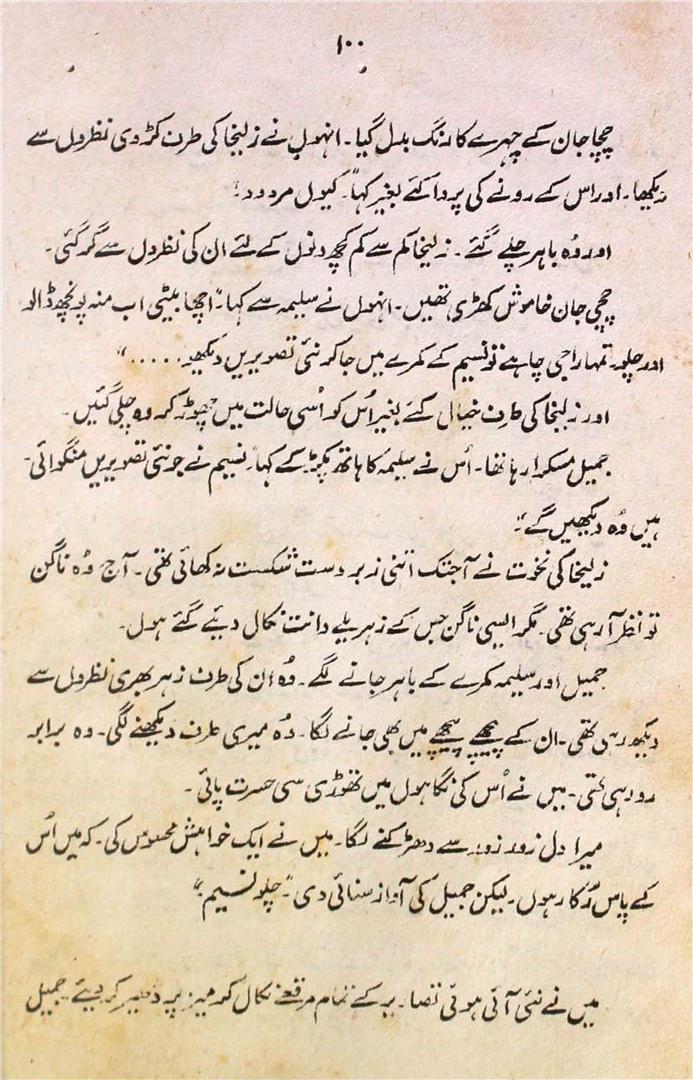 ۱۰۰
چچا جان کے چہرے کا رنگ بدل گیا۔ انہوں نے زلیخا کی طرف کڑوی نظروں سے
دیکھا۔ اور اس کے رونے کی پروا کئے بغیر کہا "۔ کیوں مردود؛
اور وُہ باہر چلے گئے۔ زلیخا کم سے کم کچھ دنوں کے لئے ان کی نظروں سے گر گئی۔
چچی جان خاموش کھڑی تھیں۔ انہوں نے سلیمہ سے کہا۔ "اچھا بیٹی اب منہ پونچھ ڈالو
اور چلو۔ تمہارا جی چاہے تو نسیم کے کمرے میں جا کر نئی تصویریں دیکھو۔ ....."
اور زلیخا کی طرف خیال کئے بغیر اُس کو اُسی حالت میں چھوڑ کر وہ چلی گئیں۔
جمیل مسکرا رہا تھا۔ اُس نے سلیمہ کا ہاتھ پکڑ کے کہا "۔ نسیم نے جو نئی تصویریں منگوائی۔
ہیں وُہ دیکھیں گے"۔
زلیخا کی نخوت نے آجتک اتنی زبردست شکست نہ کھائی تھی۔ آج وُہ ناگن
تو نظر آ رہی تھی۔ مگر ایسی ناگن جس کے زہریلے دانت نکال دیئے گئے ہوں۔
جمیل اور سلیمہ کمرے کے باہر جانے لگے۔ وُہ ان کی طرف زہر بھری نظروں سے
دیکھ رہی تھی۔ ان کے پیچھے پیچھے میں بھی جانے لگا۔ وُہ میری طرف دیکھنے لگی۔ وہ برابر
رو رہی تھی۔ میں نے اُس کی نگاہوں میں تھوڑی سی حسرت پائی۔
میرا دل زور زور سے دھڑکنے لگا۔ میں نے ایک خواہش محسوس کی۔ کہ میں اُس
کے پاس رُکا رہوں۔ لیکن جمیل کی آواز سنائی دی "۔ چلو نسیم"۔
میں نے نئی آئی ہوئی تصاویر کے تمام مرقعے نکال کر میز پر ڈھیر کر دیئے۔ جمیل